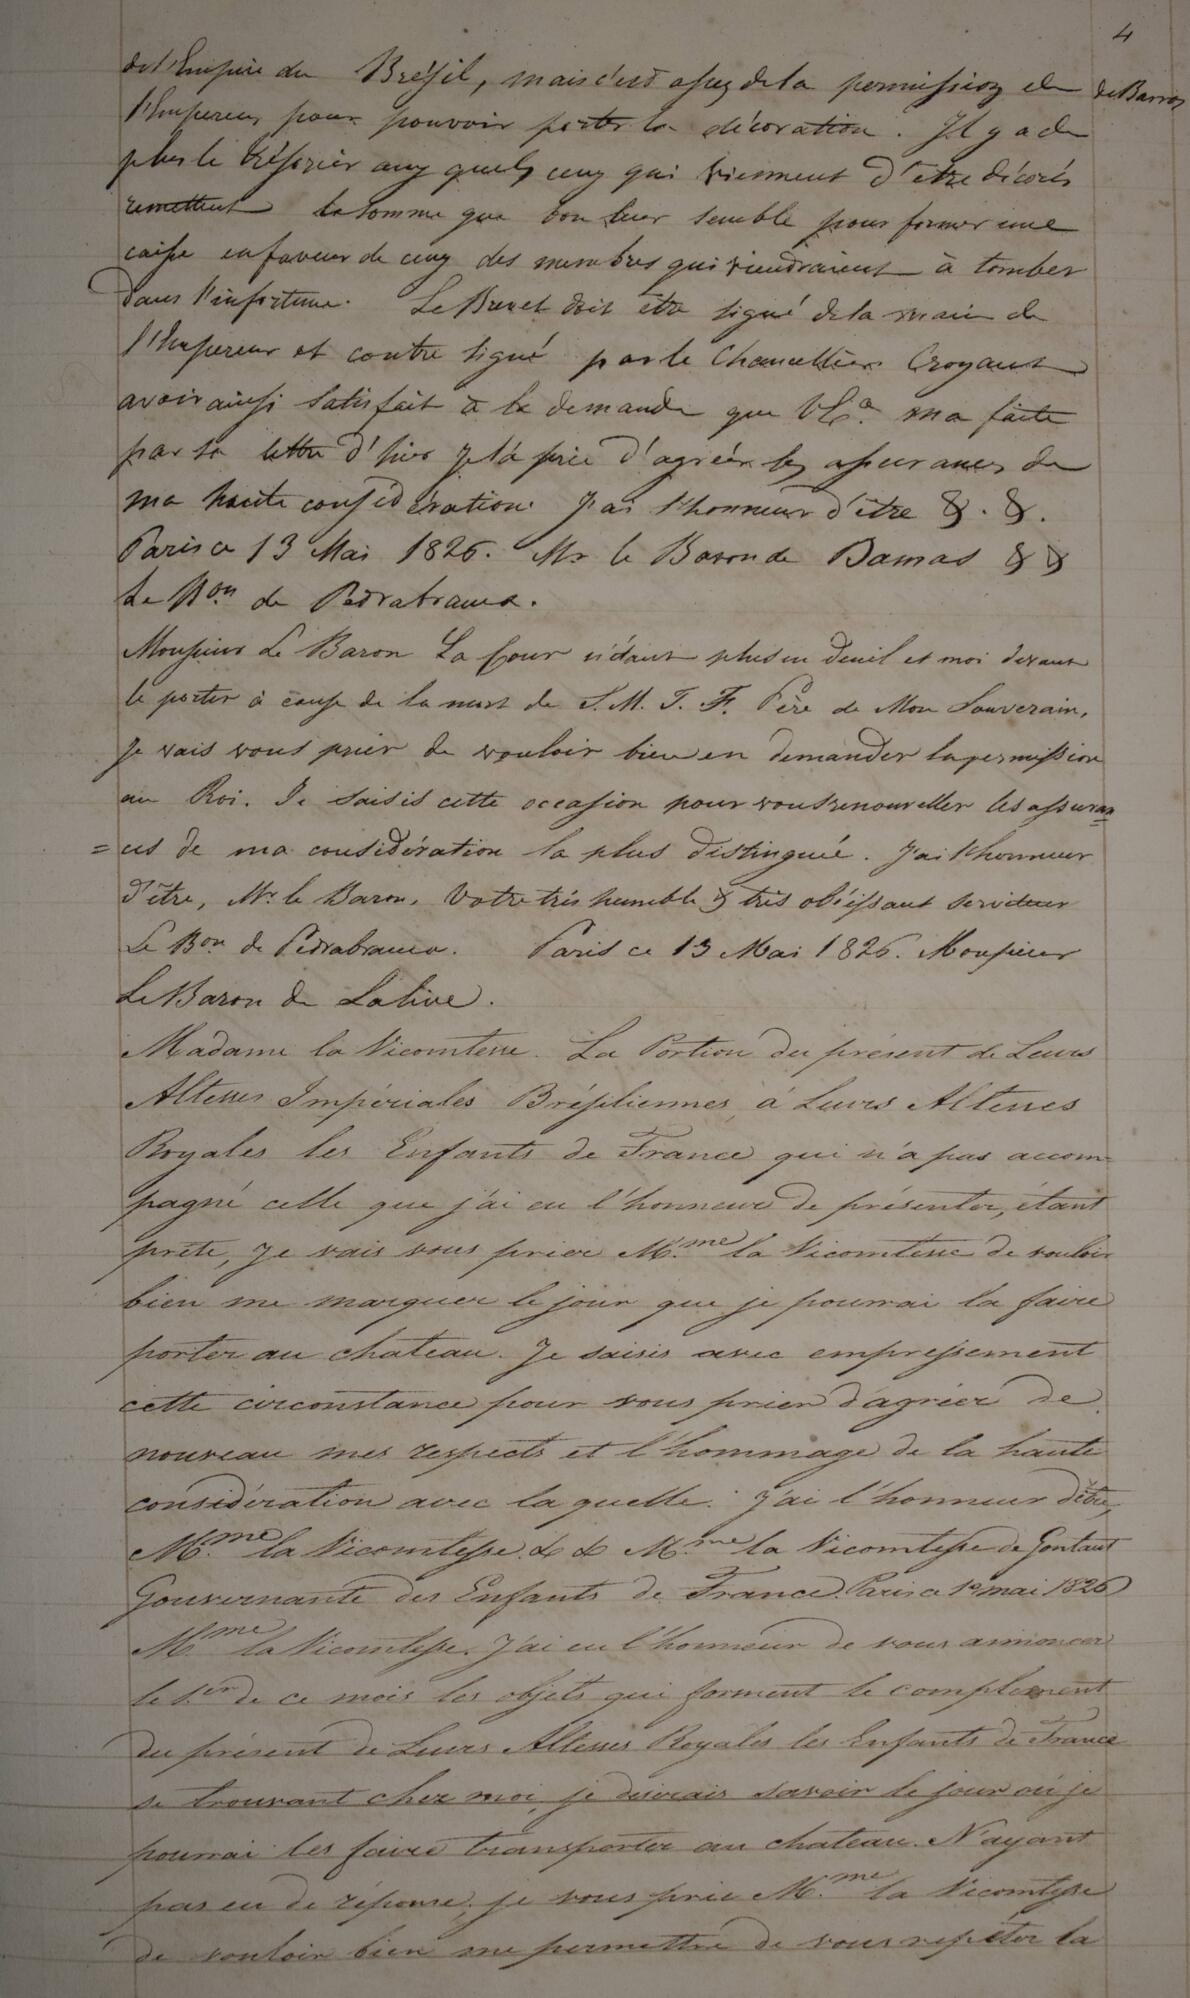 4
de l'Empire du Brésil, mais c'est assez de la permission de
de Barros
l'Empereur pour pouvoir porter la décoration. Il y a de
plus le trésorier aux quels ceux qui viennent d'être décorés
remettent la somme que bon leur semble pour former une
caisse en faveur de ceux des membres qui viendraient à tomber
dans l'infortune. Le Brevet doit être signé de la main de
l'Empereur et contre signé par le Chancellier. Croyant
avoir ainsi satisfait à la demande que V. E.ª m'a faite
par sa lettre d'hier je la prie d'agréer les assurances de
ma haute considération. J'ai l'honneur d'être &. &.
Paris ce 13 Mai 1826. Mr le Baron de Damas & &
Le B.on de Pedrabranca.
Monsieur Le Baron La Cour n'étant plus en deuil et moi devant
le porter à cause de la mort de S. M. T. F. Père de Mon Souverain,
Je vais vous prier de vouloir bien en demander la permission
au Roi. Je saisis cette occasion pour vous renouveller les assuran
=ces de ma considération la plus distinguée. J'ai l'honneur
d'être, Mr. le Baron, Votre très humble & très obéissant serviteur
Le B.on de Pedrabranca. Paris ce 13 Mai 1826. Monsieur
Le Baron de Lalive.
Madame la Vicomtesse. La Portion du présent de Leurs
Altesses Impériales Brésiliennes, à Leurs Altesses
Royales les Enfants de France qui n'a pas accom-
pagné celle que j'ai eu l'honneur de présenter, étant
prête, je vais vous prier M.me la Vicomtesse de vouloir
bien me marquer le jour que je pourrai la faire
porter au chateau. Je saisis avec empressement
cette circonstance pour vous prier d'agréer de
nouveau mes respects et l'hommage de la haute
considération avec la quelle. J'ai l'honneur d'être,
M.me la Vicomtesse & & M.me la Vicomtesse de Gontaut
Gouvernante des Enfants de France. Paris ce 1º mai 1826
M.me la Vicomtesse. J'ai eu l'honneur de vous annoncer
le 1.er de ce mois les objets qui forment le complement
du présent de Leurs Altesses Royales les Enfants de France
se trouvant chez moi, je désirais savoir le jour où je
pourrai les faire transporter au chateau. N'ayant
pas eu de réponse, je vous prie M.me la Vicomtesse
de vouloir bien me permettre de vous repéter la